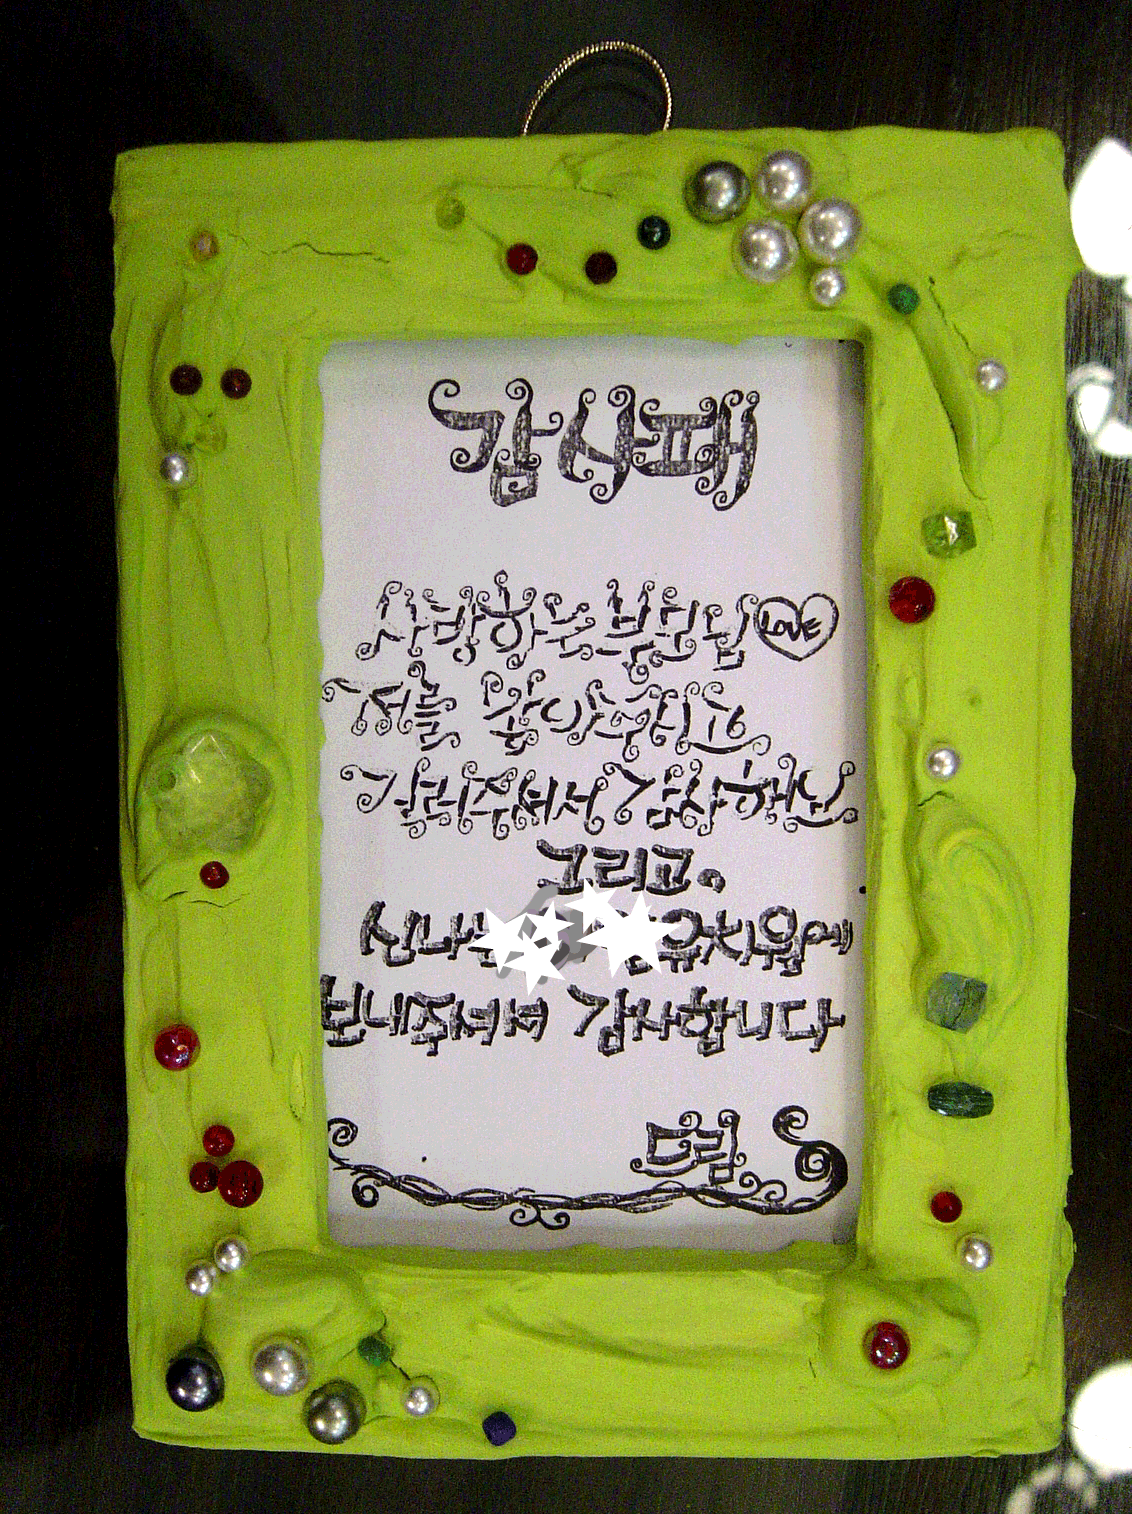 감사패
사랑하는 부모님 LOVE
저를 낳아주시고
길러주셔서 감사해요
그리고。
신나는 유치원에
보내주셔서 감사합니다
드림